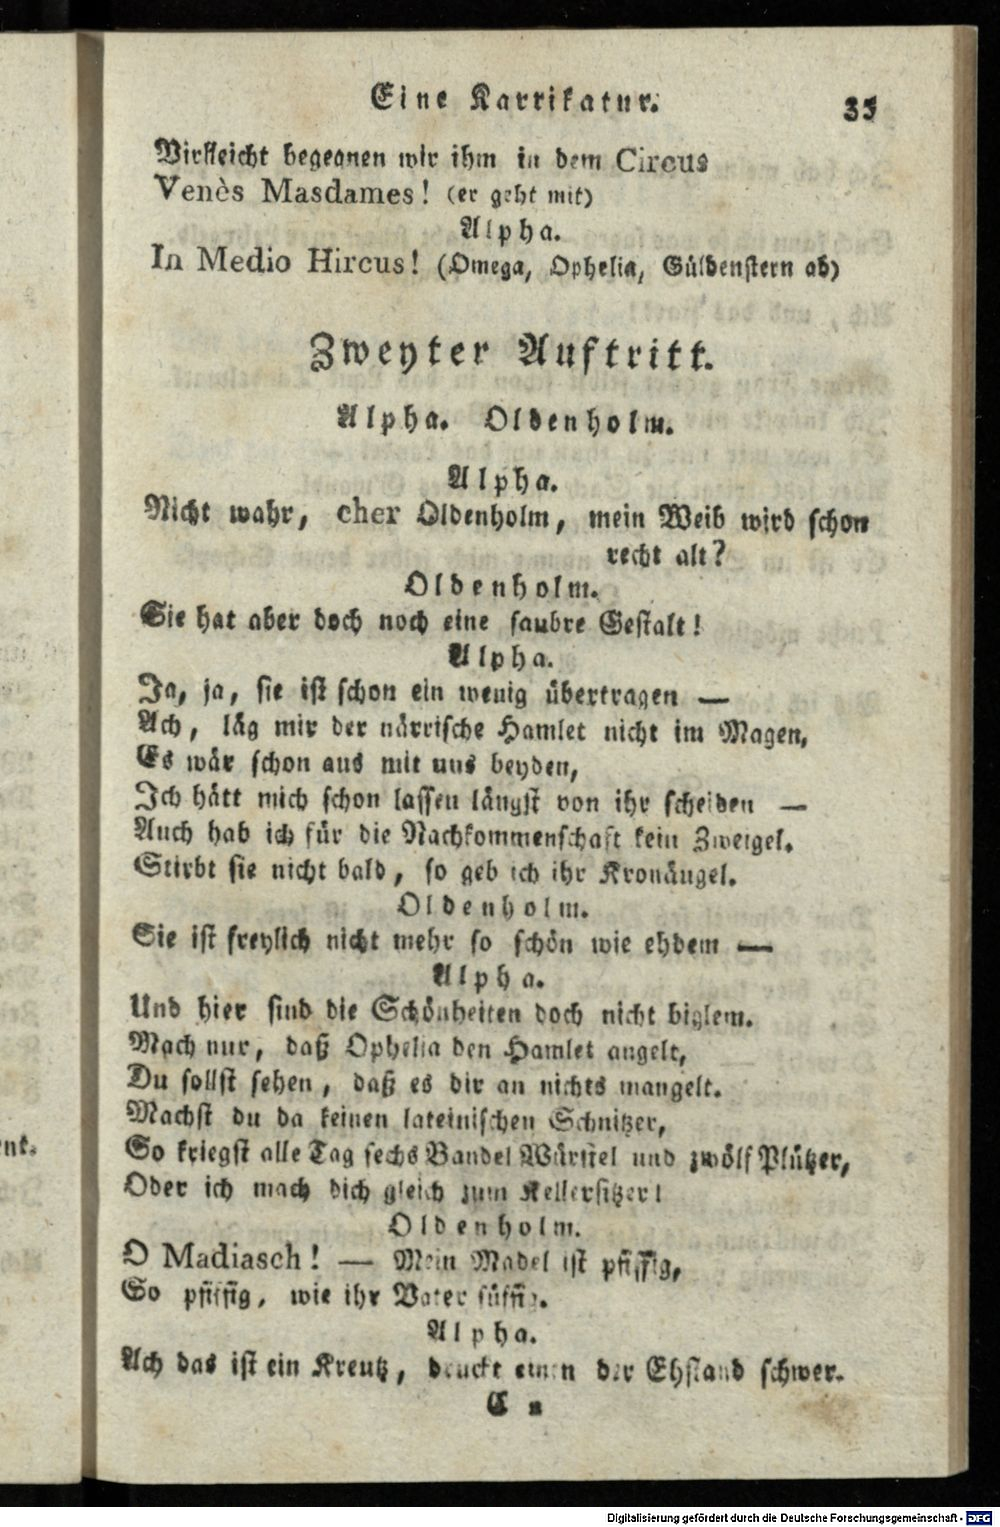 Eine Karrikatur.
35
Vielleicht begegnen wir ihm in dem Circus
Venès Masdames! (er geht mit)
Alpha.
In Medio Hircus! (Omega, Ophelia, Güldenstern ab)
Zweyter Auftritt.
Alpha. Oldenholm.
Alpha.
Nicht wahr, cher Oldenholm, mein Weib wird schon
recht alt?
Oldenholm.
Sie hat aber doch noch eine saubre Gestalt!
Alpha.
Ja, ja, sie ist schon ein wenig übertragen —
Ach, läg mir der närrische Hamlet nicht im Magen,
Es wär schon aus mit uns beyden,
Ich hätt mich schon lassen längst von ihr scheiden —
Auch hab ich für die Nachkommenschaft kein Zweigel.
Stirbt sie nicht bald, so geb ich ihr Kronäugel.
Oldenholm.
Sie ist freylich nicht mehr so schön wie ehdem —
Alpha.
Und hier sind die Schönheiten doch nicht biglem.
Mach nur, daß Ophelia den Hamlet angelt,
Du sollst sehen, daß es dir an nichts mangelt.
Machst du da keinen lateinischen Schnitzer,
So kriegst alle Tag sechs Bandel Würstel und zwölf Plützer,
Oder ich mach dich gleich zum Kellersitzer!
Oldenholm.
O Madiasch! — Mein Madel ist pfiffig,
So pfiffig, wie ihr Vater süffig.
Alpha.
Ach das ist ein Kreutz, druckt einen der Ehstand schwer.
C
ent.
Digitalisierung gefördert durch die Deutsche Forschungsgemeinschaft - DFG